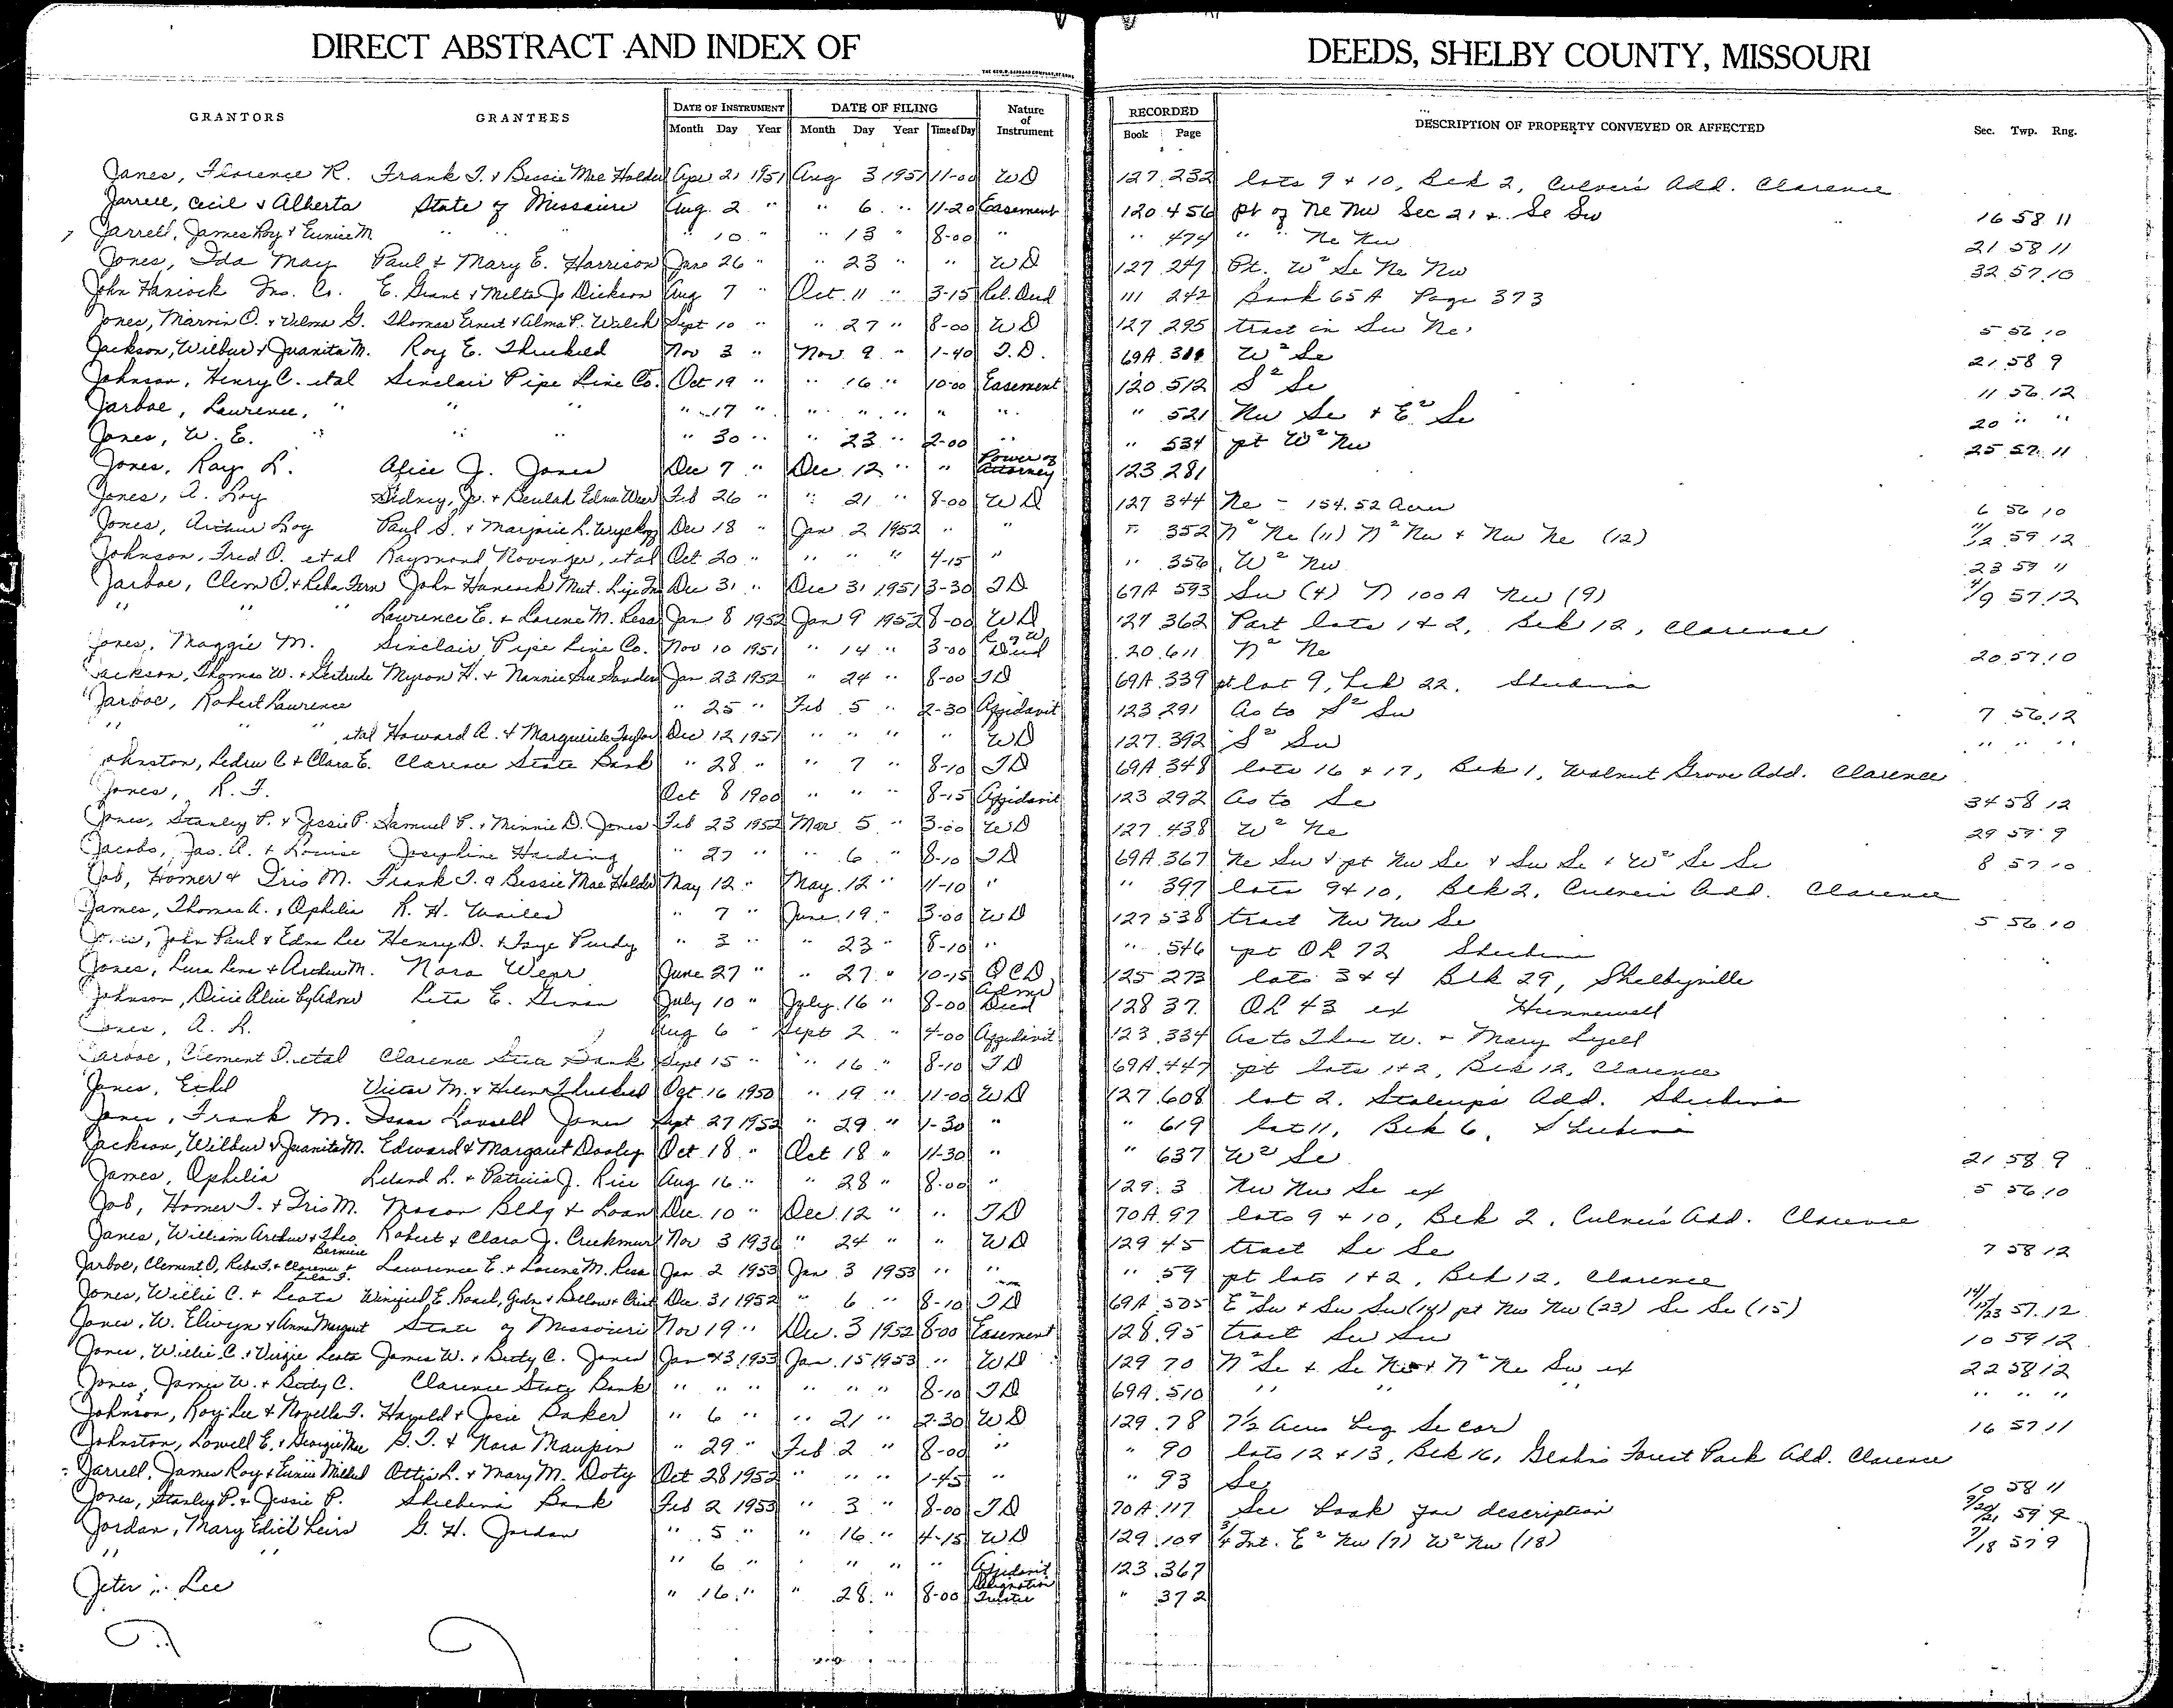 DIRECT ABSTRACT AND INDEX OF DEEDS, SHELBY COUNTY, MISSOURI
GRANTORS GRANTEES DATE OF INSTRUMENT Month Day Year DATE OF FILING Month Day Year Time of Day Nature of Instrument RECORDED Book Page DESCRIPTION OF PROPERTY CONVEYED OR AFFECTED Sec. Twp. Rng.
Janes, Florence R. Frank T. & Bessie Mae Holder Apr 21 1951 Aug 3 1951 11-00 WD 127 232 lots 9 + 10, Blk 2, Culver's Add. Clarence
Jarrell, Cecil & Alberta State of Missouri Aug. 2 " " 6 " 11-20 Easement 120 456 pt of Ne Nw Sec 21 & Se Sw 16 58 11
Jarrell, James Roy & Eunice M " " " " 10 " " 13 " 8-00 " " 474 " " Ne Nw 21 58 11
Jones, Ida May Paul & Mary E. Harrison Jan 26 " " 23 " " WD 127 249 Pt. W² Se Ne Nw 32 57 10
John Hancock Ins. Co. E. Grant & Melta Jo Dickson Aug 7 " Oct 11 " 3-15 Rel. Deed 111 242 Book 65A Page 373
Jones, Marvin O. & Velma G. Thomas Ernest & Alma P. Welch Sept 10 " " 27 " 8-00 WD 127 295 tract in Sw Ne 5 56 10
Jackson, Wilbur & Juanita M. Roy E. Threlkeld Nov 3 " Nov 9 " 1-40 T.D. 69A W² Se 21 58 9
Johnson, Henry C. etal Sinclair Pipe Line Co. Oct 19 " " 16 " 10-00 Easement 120 512 S² Se 11 56 12
Jarboe, Lawrence, " " " " 17 " " " " " " " 521 Nw Se & E² Se 20 " "
Jones, W. E. " " " " 30 " " 23 " 2-00 " " 534 pt W² Nw 25 57 11
Jones, Ray L. Alice J. Jones Dec 7 " Dec 12 " " Power of Attorney 123 281
Jones, A. Roy Sidney, Jr. & Beulah Edna Weer Feb 26 " " 21 " 8-00 WD 127 344 Ne - 154.52 Acres 6 56 10
Jones, Arthur Roy Paul S. & Marjorie L. Wyckoff Dec 18 " Jan 2 1952 " " " 352 N² Ne (11) N² Nw & Nw Ne (12) 11/12 59 12
Johnson, Fred O. etal Raymond Novinger, etal Oct 20 " " " " 4-15 " " 356 W² Nw 23 59 11
Jarboe, Clem O. & Reba Fern John Hancock Mut. Life Ins Dec 31 " Dec 31 1951 3-30 TD 67A 593 Sw (4) N 100A Nw (9) 4/9 57 12
" " " Lawrence E. & Lorene M. Resa Jan 8 1952 Jan 9 1952 8-00 WD 127 362 Part lots 1 & 2, Blk 12, Clarence
Jones, Maggie M. Sinclair Pipe Line Co. Nov 10 1951 " 14 " 3-00 R of W Deed 120 611 N² Ne 20 57 10
Jackson, Thomas W. & Gertrude Myron H. & Nannie Sue Sanders Jan 23 1952 " 24 " 8-00 TD 69A 339 pt lot 9, Blk 22, Shelbina
Jarboe, Robert Lawrence " 25 " Feb 5 " 2-30 Affidavit 123 291 As to S² Sw 7 56 12
" " " etal Howard A. & Marguerite Taylor Dec 12 1951 " " " " WD 127 392 S² Sw " " "
Johnston, Ledru C. & Clara E. Clarence State Bank " 28 " " 7 " 8-10 TD 69A 348 lots 16 & 17, Blk 1, Walnut Grove Add. Clarence
Jones, R. F. Oct 8 1900 " " " 8-15 Affidavit 123 292 As to Se 34 58 12
Jones, Stanley P. & Jessie P. Samuel P. & Minnie D. Jones Feb 23 1952 Mar 5 " 3-00 WD 127 438 W² Ne 29 59 9
Jacobs, Jas. A. & Louise Josephine Harding " 27 " " 6 " 8-10 TD 69A 367 Ne Sw & pt Nw Se & Sw Se & W² Se Se 8 57 10
Job, Homer & Iris M. Frank T. & Bessie Mae Holder May 12 " May 12 " 11-10 " " 397 lots 9 & 10, Blk 2, Culver's Add. Clarence
James, Thomas A. & Ophelia R. H. Wailes " 7 " June 19 " 3-00 WD 127 538 tract Nw Nw Se 5 56 10
John Paul & Edna Lee Henry D. & Faye Purdy " 3 " " 23 " 8-10 " " 546 pt OL 72 Shelbina
Jones, Lura Lene & Arthur M. Nora Wear June 27 " " 27 " 10-15 QCD 125 273 lots 3 & 4 Blk 29, Shelbyville
Johnson, Dixie Alice by Admr Leta E. July 10 " July 16 " 8-00 Admr Deed 128 37 OL 43 ex Hunnewell
Jones, A. R. Aug 6 " Sept 2 " 4-00 Affidavit 123 334 As to Theo W. & Mary Lyell
Jarboe, Clement O. etal Clarence State Bank Sept 15 " " 16 " 8-10 TD 69A 447 pt lots 1 & 2, Blk 12, Clarence
Jones, Ethel Victor M. & Helen Threlkeld Oct 16 1950 " 19 " 11-00 WD 127 608 lot 2, Stalcup's Add. Shelbina
Jones, Frank M. Isaac Lowell Jones Sept 27 1952 " 29 " 1-30 " " 619 lot 11, Blk 6, Shelbina
Jackson, Wilbur & Juanita M. Edward & Margaret Dooley Oct 18 " Oct 18 " 11-30 " " 637 W² Se 21 58 9
James, Ophelia Leland L. & Patricia J. Rice Aug 16 " " 28 " 8-00 " 129 3 Nw Nw Se ex 5 56 10
Job, Homer T. & Iris M. Macon Bldg & Loan Dec 10 " Dec 12 " " TD 70A 97 lots 9 & 10, Blk 2, Culver's Add. Clarence
Janes, William Arthur & Theo Bernice Robert & Clara J. Creekmur Nov 3 1936 " 24 " " WD 129 45 tract Se Se 7 58 12
Jarboe, Clement O, Reba F. & Clarence & Lela F. Lawrence E. & Lorene M. Resa Jan 2 1953 Jan 3 1953 " " " 59 pt lots 1 & 2, Blk 12, Clarence
Jones, Willie C. & Leota Dec 31 1952 " 6 " 8-10 TD 69A 505 E² Sw & Sw Sw (14) pt Nw Nw (23) Se Se (15) 14/15/23 57 12
Jones, W. Elwyn & Anna Margaret State of Missouri Nov 19 " Dec. 3 1952 8-00 Easement 128 95 tract Sw Sw 10 59 12
Jones, Willie C. & Virgie Leota James W. & Betty C. Jones Jan 13 1953 Jan 15 1953 " WD 129 70 N² Se & Se Ne & N² Ne Sw ex 22 58 12
Jones, James W. & Betty C. Clarence State Bank " " " " " " 8-10 TD 69A 510 " " " " " "
Johnson, Roy Lee & Novella F. Harold & Josie Baker " 6 " " 21 " 2-30 WD 129 78 7½ Acres beg Se cor 16 57 11
Johnston, Lowell E. & Georgia Mae G. T. & Nora Maupin " 29 " Feb 2 " 8-00 " " 90 lots 12 & 13, Blk 16, Forest Park Add. Clarence
Jarrell, James Roy & Eunice Mildred Ottis L. & Mary M. Doty Oct 28 1952 " " " 1-45 " " 93 Se 10 58 11
Jones, Stanley P. & Jessie P. Shelbina Bank Feb 2 1953 " 3 " 8-00 TD 70A 117 See book for description 59 9
Jordan, Mary Edith heirs G. H. Jordan " 5 " " 16 " 4-15 WD 129 109 ¾ Int. E² Nw (7) W² Nw (18) 7/18 57 9
" " " 6 " " " " Affidavit 123 367
Jeter Lee " 16 " " 28 " 8-00 Resignation Trustee " 372